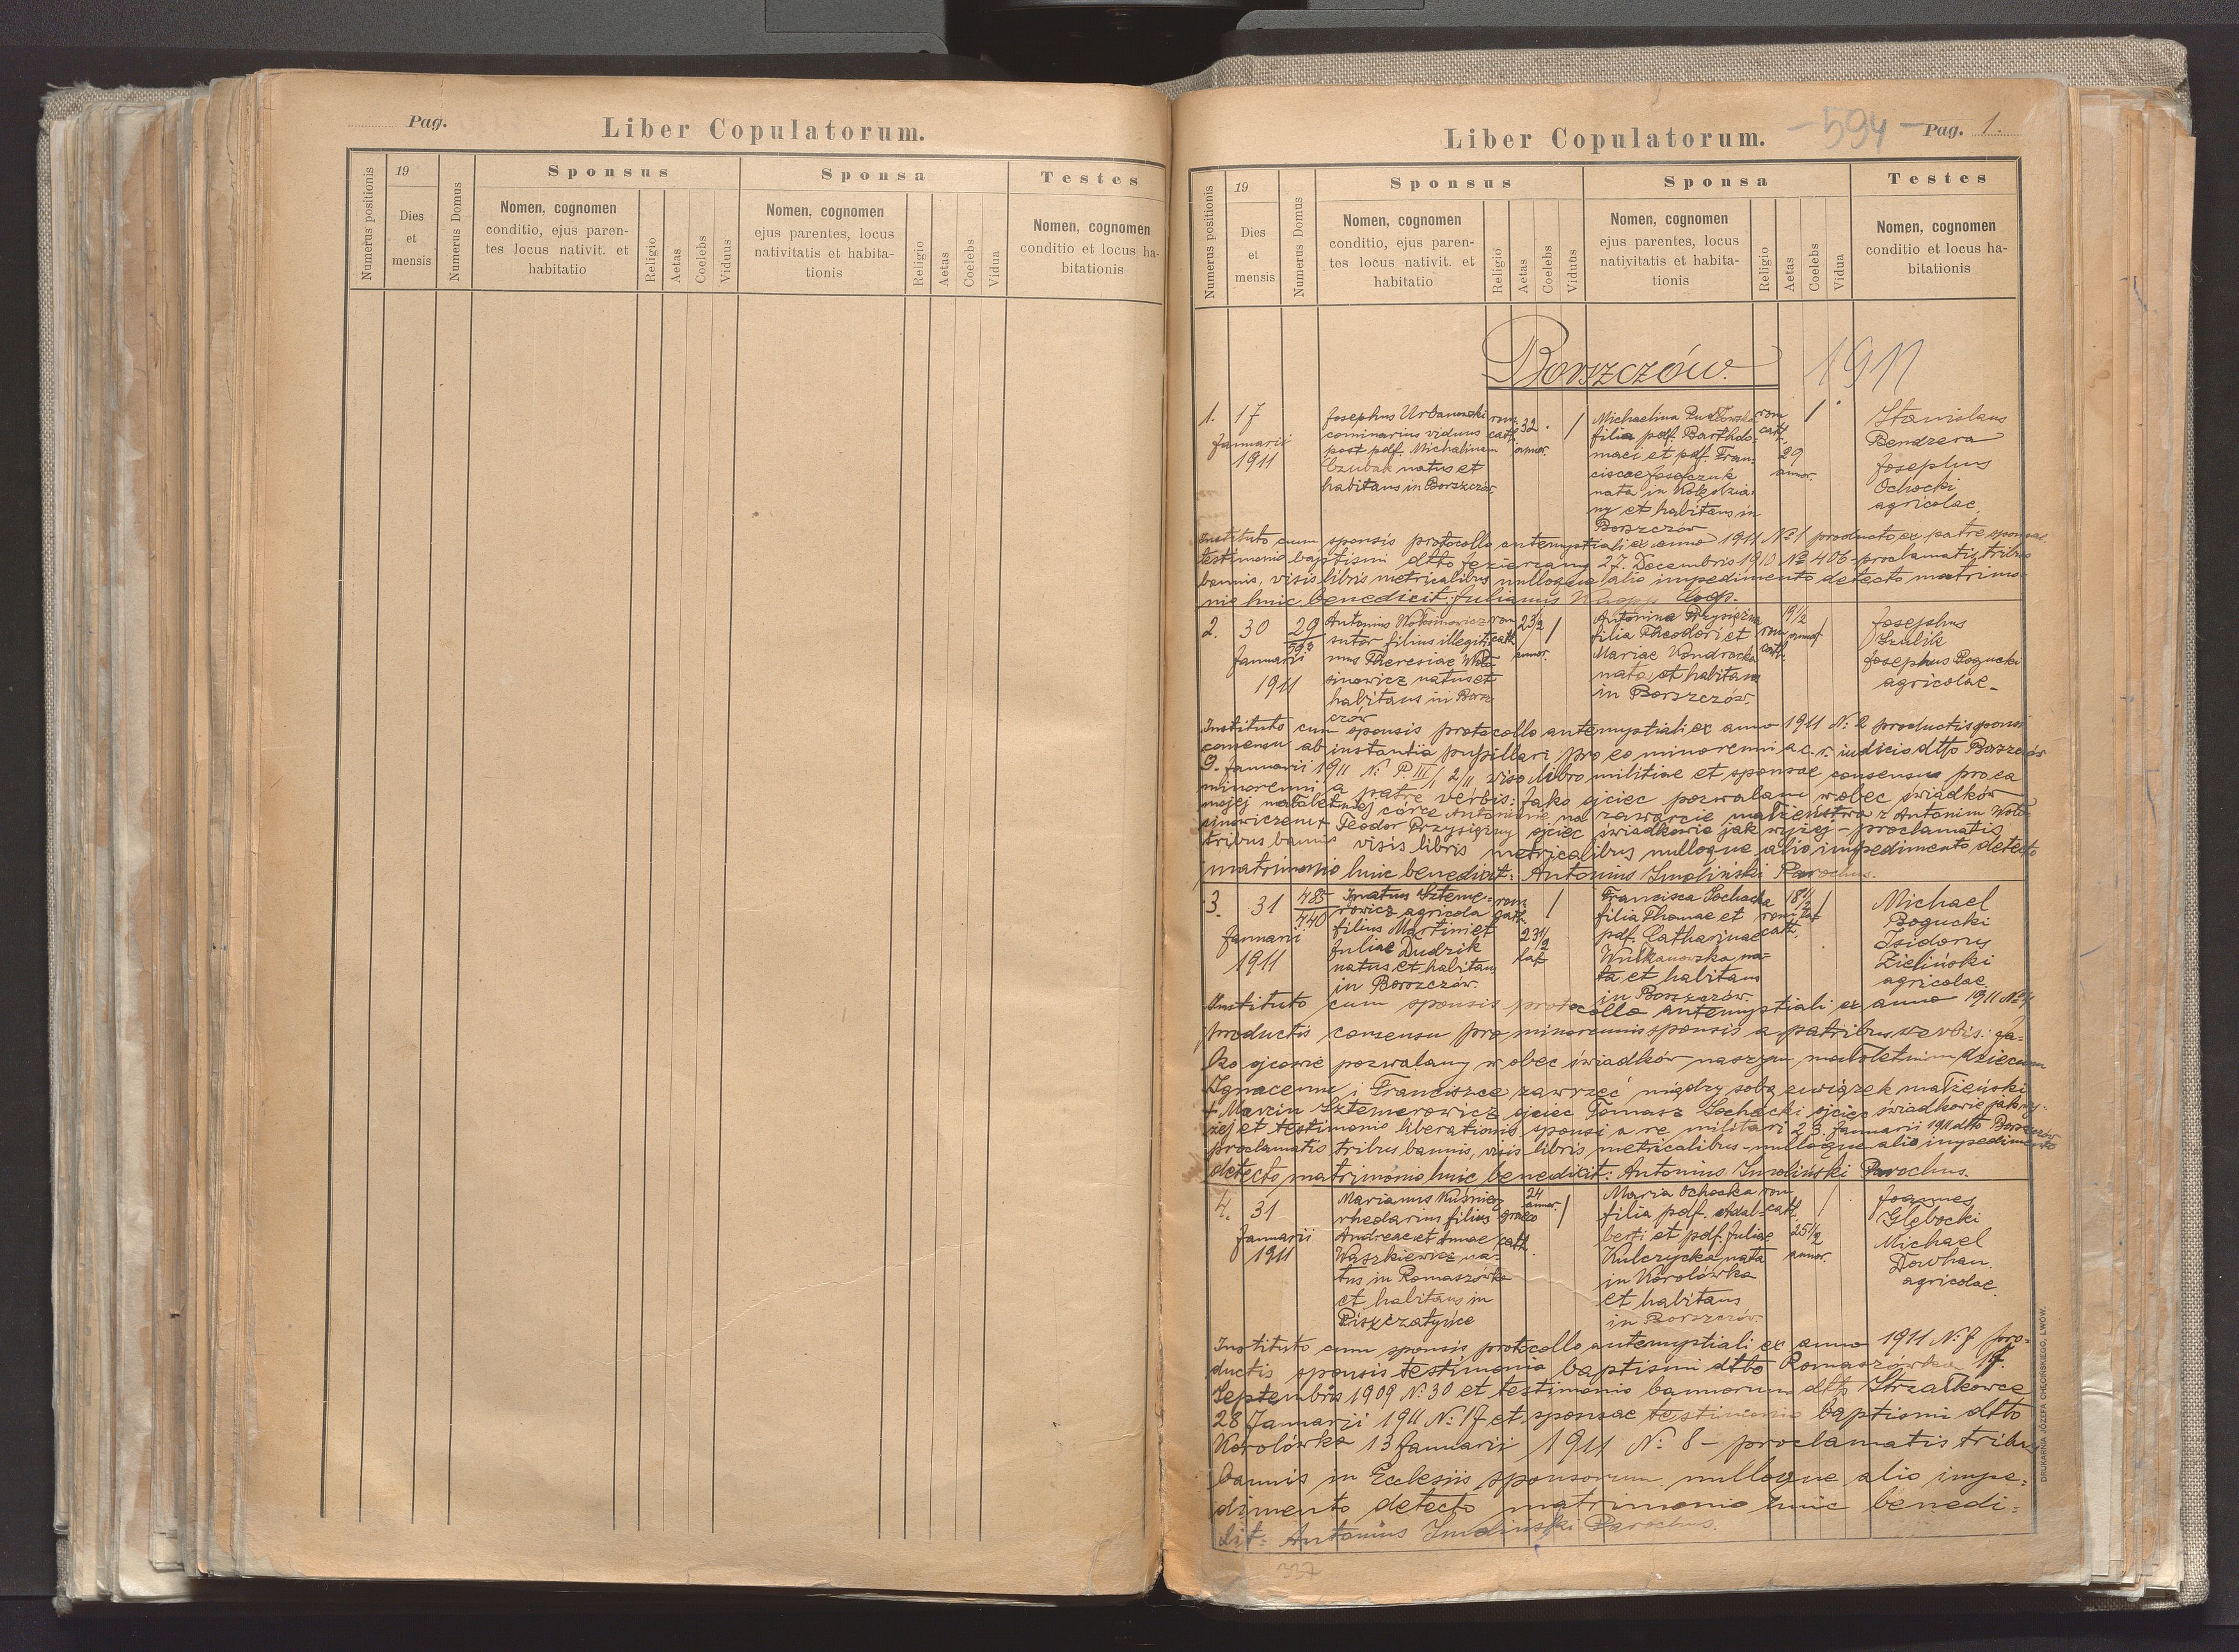 Pag.
Liber Copulatorum.
Numerus positionis
19
Dies
et
mensis
Numerus Domus
Sponsus
Nomen, cognomen
conditio, ejus paren-
tes locus nativit. et
habitatio
Religio
Aetas
Coelebs
Viduus
Sponsa
Nomen, cognomen
ejus parentes, locus
nativitatis et habita-
tionis
Religio
Aetas
Coelebs
Vidua
Testes
Nomen, cognomen
conditio et locus ha-
bitationis
Liber Copulatorum.
- 594 -
Pag. 1.
Numerus positionis
19
Dies
et
mensis
Numerus Domus
Sponsus
Nomen, cognomen
conditio, ejus paren-
tes locus nativit. et
habitatio
Religio
Aetas
Coelebs
Viduus
Sponsa
Nomen, cognomen
ejus parentes, locus
nativitatis et habita-
tionis
Religio
Aetas
Coelebs
Vidua
Testes
Nomen, cognomen
conditio et locus ha-
bitationis
Borszczów.
1911
1.
17
Januarii
1911
Josephus Urbanowski
viduus
post pdf. Michalinam
Czubak natus et
habitans in Borszczów
rom.
cath.
32
annor.
/
Michaelina
filia pdf. Bartholo-
maei et pdf. Fran-
ciscae
nata in Kolędzia-
ny et habitans in
Borszczów
rom
cath.
29
annor.
/
Stanislaus
Bendzera
Josephus
Ochocki
agricolae
Instituto cum sponsis protocollo antenuptiali ex anno 1911 № 1 producto ex parte sponsae
testimonio baptismi dtto Jezierzany 27. Decembris 1910 № 406 - proclamatis tribus
bannis, visis libris metricalibus nulloque alio impedimento detecto matrimo-
nio huic benedicit: Julianus Coop.
2.
30
Januarii
1911
29
593
Antonius Wołosinowicz
sutor filius illegiti-
mus Theresiae Woło-
sinowicz natus et
habitans in Borsz-
czów
rom
cath
23 1/2
annor.
/
Antonina Przysiężna
filia Theodori et
Mariae Kondracka
nata et habitans
in Borszczów.
rom
cath.
19 1/2
annor
/
Josephus
Szulik
Josephus Rogucki
agricolae -
Instituto cum sponsis protocollo antenuptiali ex anno 1911 N: 2 productis sponsi
consensu ab instantia pupillari pro eo minorenni a c. r. iudicio dtto Borszczów
9. Januarii 1911 N: P. III/1 2/11 viso libro militiae et sponsae consensu pro ea
minorenni a patre verbis: Jako ojciec pozwalam wobec świadków
mojej małoletniej córce Antoninie na zawarcie małżeństwa z Antonim Woło-
sinowiczem + Teodor Przysiężny ojciec świadkowie jak wyżej - proclamatis
tribus bannis visis libris metricalibus nulloque alio impedimento detecto
matrimonio huic benedicit: Antonius Smoliński Parochus.
3.
31
Januarii
1911
485
740
Ignatius Szteme-
rowicz agricola
filius Martini et
Juliae Dudzik
natus et habitans
in Borszczów.
rom.
cath.
23 1/2
lat
/
Francisca Sochacka
filia Thomae et
pdf. Catharinae
Wulkanowska na-
ta et habitans
in Borszczów.
rom
cath.
18 1/2
lat
/
Michael
Bogucki
Isidorus
Zieliński
agricolae
Instituto cum sponsis protocollo antenuptiali ex anno 1911 № 4
productis consensu pro minorennis sponsis a patribus verbis: Ja-
ko ojcowie pozwalamy wobec świadków naszym małoletnim dzieciom
Ignacemu i Franciszce zawrzeć między sobą związek małżeński
+ Marcin Sztemerowicz ojciec Tomasz Sochacki ojciec świadkowie jak wy-
żej et testimonio liberationis sponsi a re militari 23. Januarii 1911 dtto Borszczów
proclamatis tribus bannis, visis libris metricalibus - nulloque alio impedimento
detecto matrimonio huic benedicit: Antonius Smoliński Parochus.
4.
31
Januarii
1911
Marianus Kuśnierz
rhedarius filius
Andreae et Annae
Waszkiewicz na-
tus in Romaszówka
et habitans in
Piszczatyńce
graeco
cath.
24
annor.
/
Maria Ochocka
filia pdf. Adal-
berti et pdf. Juliae
Kulczycka nata
in Korolówka
et habitans
in Borszczów.
rom
cath.
25 1/2
annor.
/
Joannes
Głębocki
Michael
Dowhan.
agricolae.
Instituto cum sponsis protocollo antenuptiali ex anno 1911 N: 7 pro-
ductis sponsis testimonia baptismi dtto Romaszówka 17.
Septembris 1909 N: 30 et testimonio bannorum dtto Strzałkowce
28 Januarii 1911 N: 17 et sponsae testimonio baptismi dtto
Korolówka 13 Januarii 1911 N: 8 - proclamatis tribus
bannis in Ecclesiis sponsorum nulloque alio impe-
dimento detecto matrimonio huic benedi-
cit: Antonius Smoliński Parochus.
337
DRUKARNIA JÓZEFA CHĘCIŃSKIEGO, LWÓW.